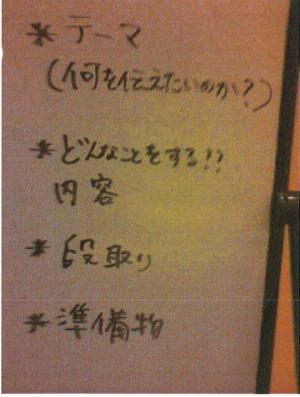 *テーマ
(何を伝えたいのか?)
*どんなことをする!?
内容
*段取り
*準備物